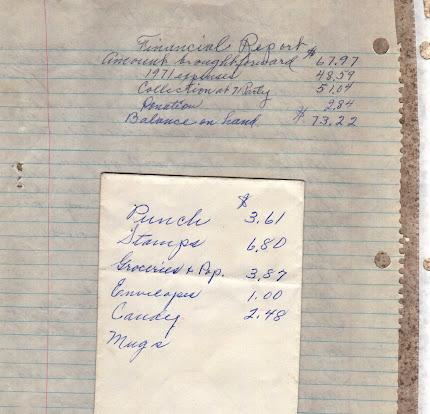 Financial Report
Amount brought forward $67.97
1971 expenses 48.59
Collection at 71 Party 51.04
Donation 2.84
Balance on hand $73.22
$
Punch 3.61
Stamps 6.80
Groceries + Pop. 3.87
Envelopes 1.00
Candy 2.48
Mugs